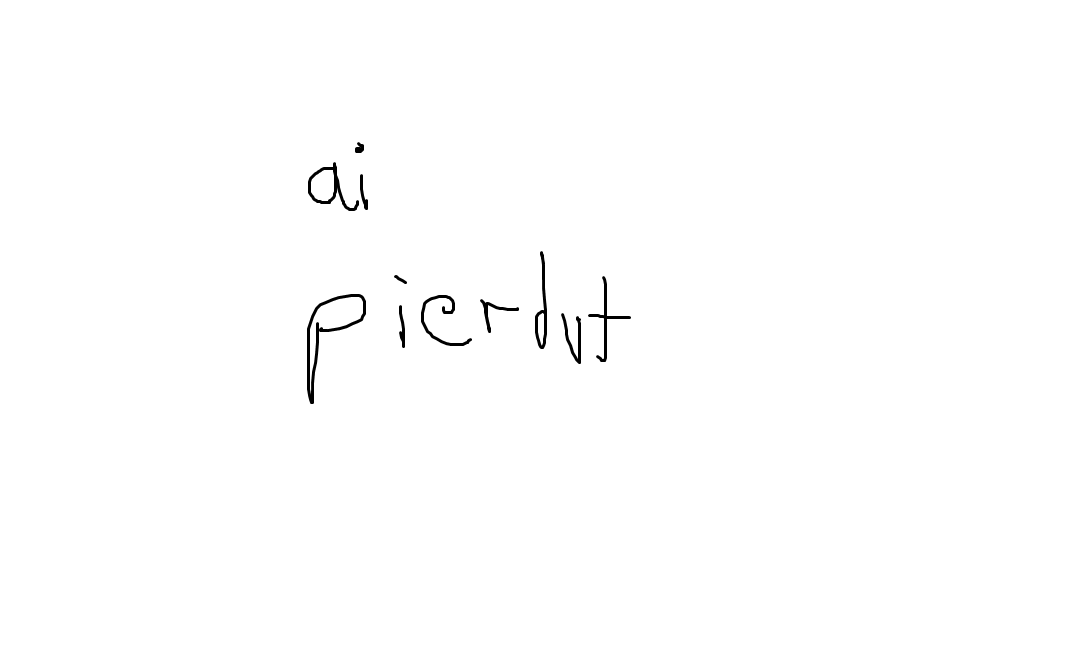 ai
pierdut